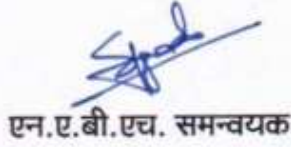 एन.ए.बी.एच. समन्वयक